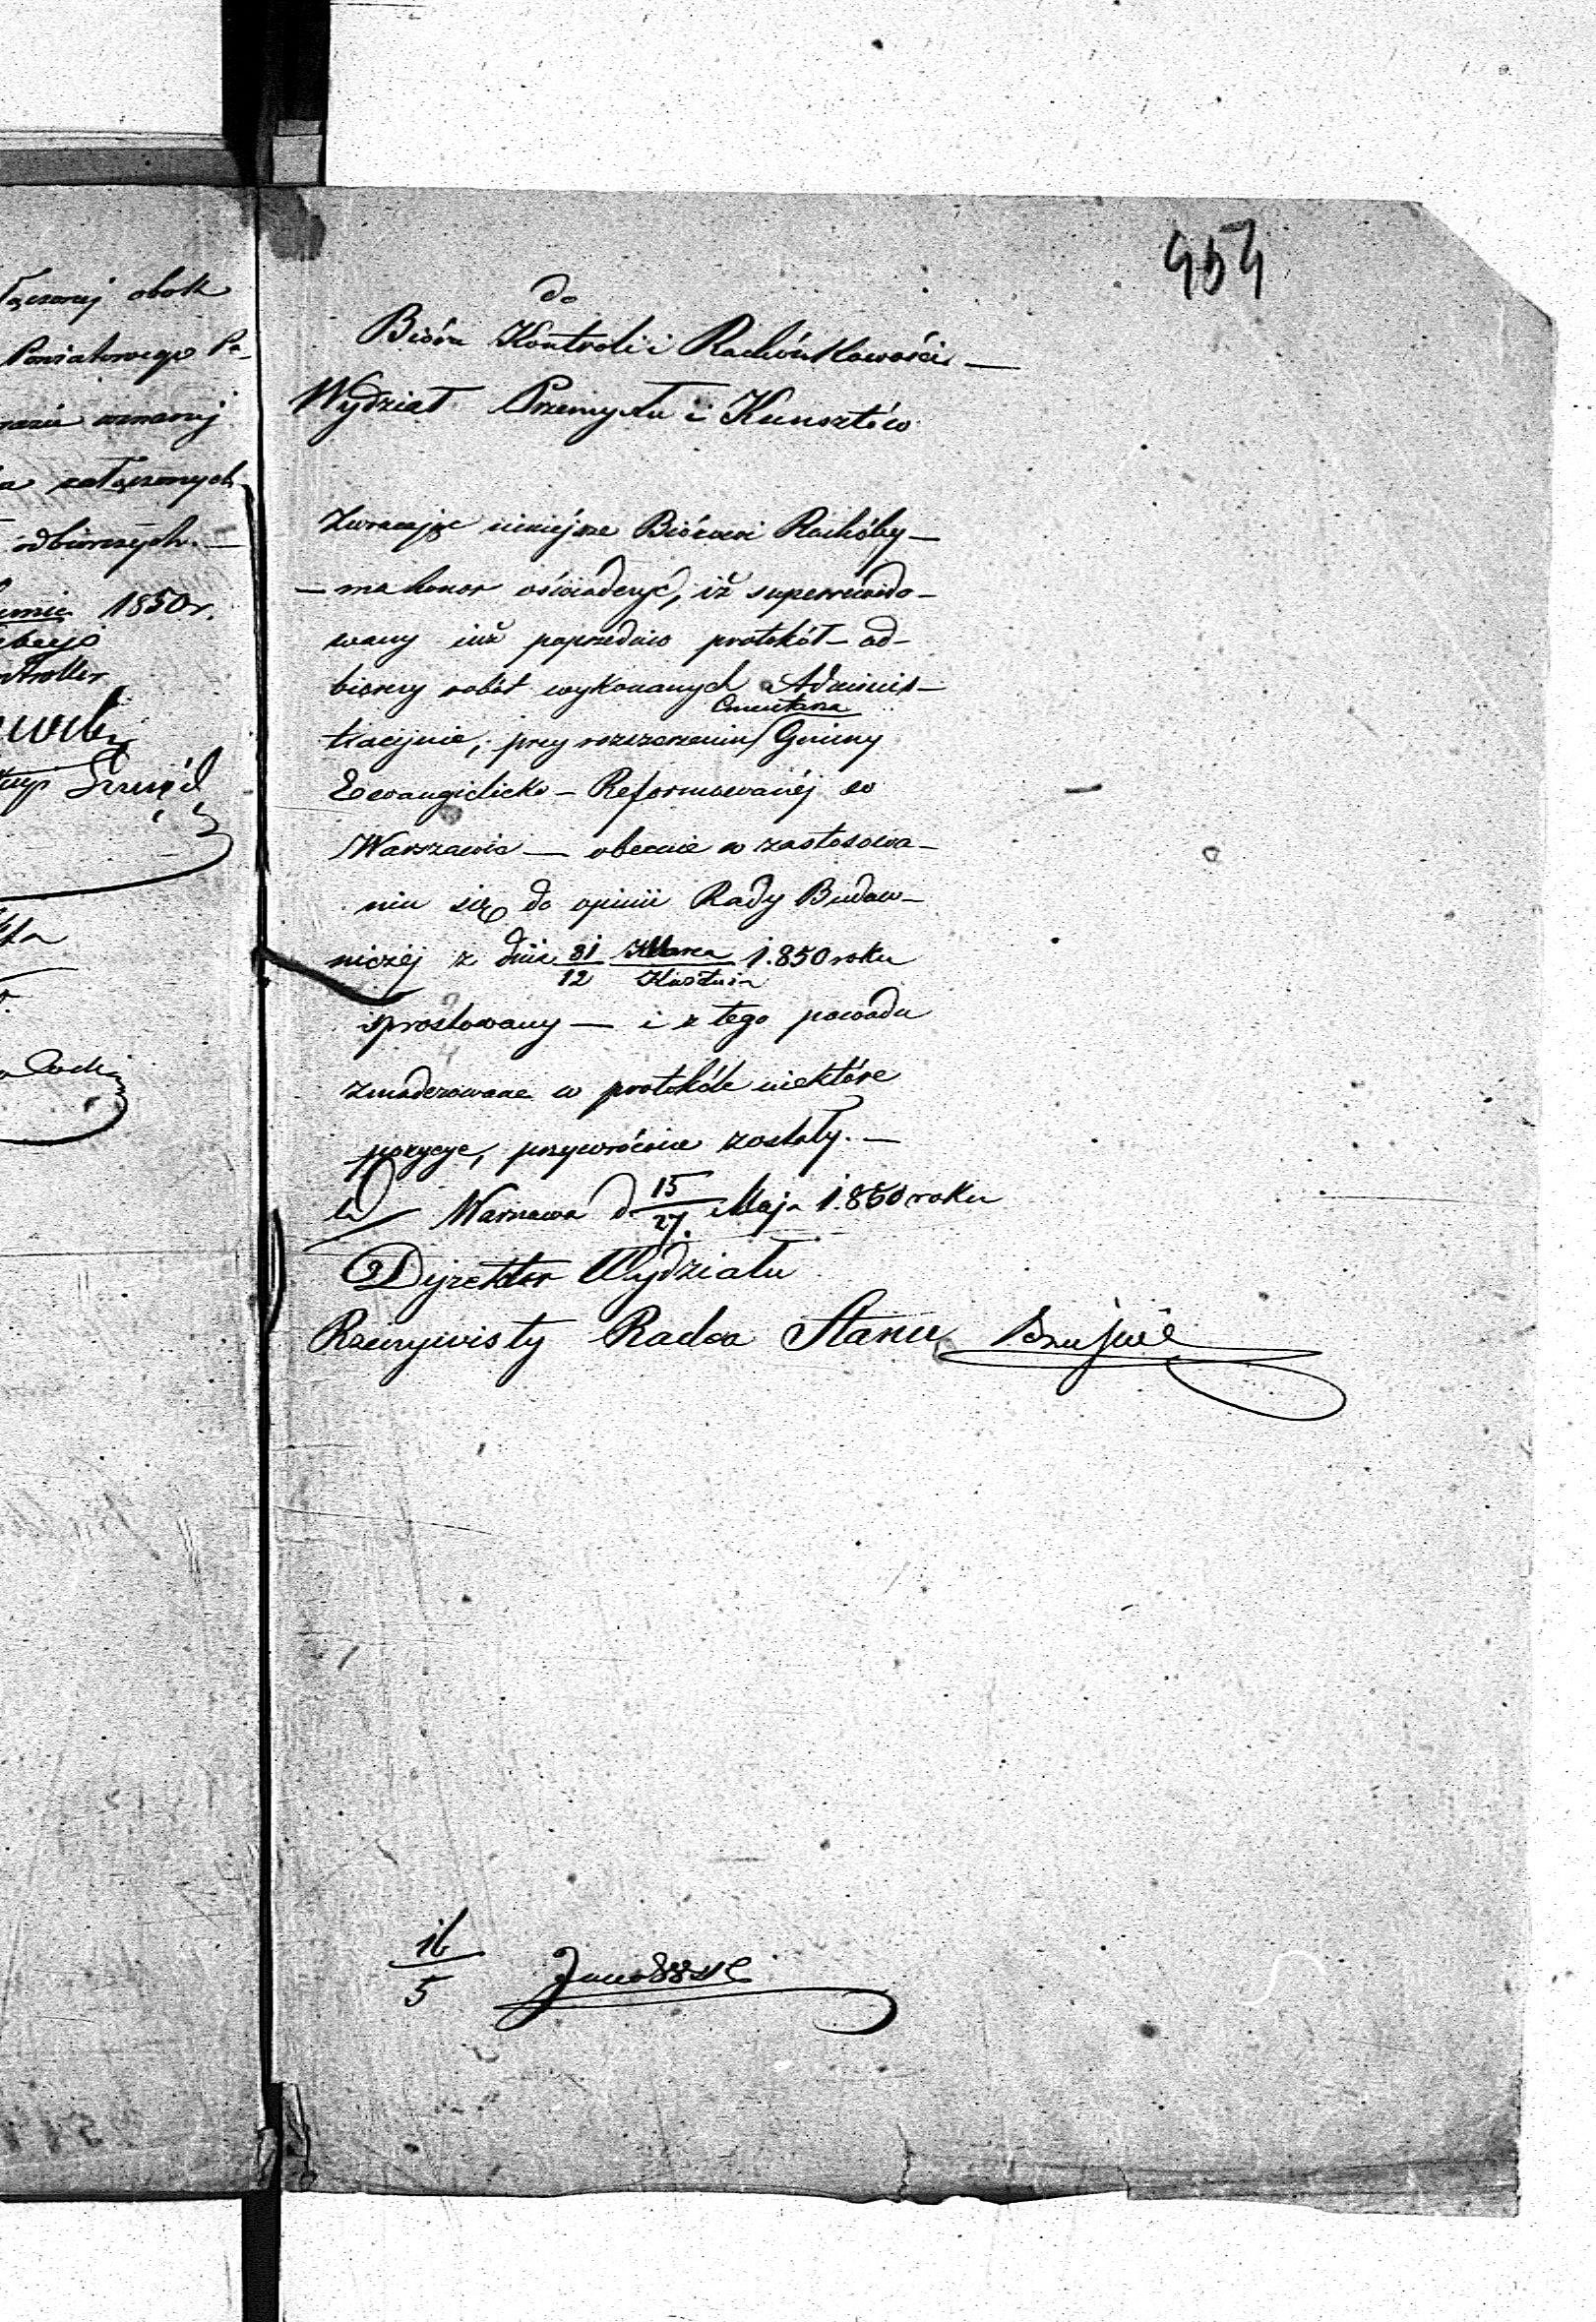 łączonej obok
Powiatowego Po-
razie wznanej
załączonych
odbiorczych. —
1850 r.
454
do
Bióra Kontroli i Rachónkowości —
Wydział Przemysłu i Kunsztów
Zwracając niniejsze Biórowi Rachóby —
— ma honor oświadczyć, iż superrewido-
wany już poprzednio protokół od-
biorczy robót wykonanych Adminis-
tracyjnie, przy rozszerzeniu Cmentarza Gminy
Ewangielicko - Reformowanéj w
Warszawie — obecnie w zastosowa-
niu się do opinii Rady Budow-
niczéj z dnia 31/12 Marca/Kwietnia 1.850 roku
sprostowany — i z tego powodu
zmoderowane w protokóle niektóre
pozycye, przywrócone zostały. —
w Warszawa d 15/27. Maja 1.850 roku
Dyrektor Wydziału
Rzeczywisty Radca Stanu
16/5